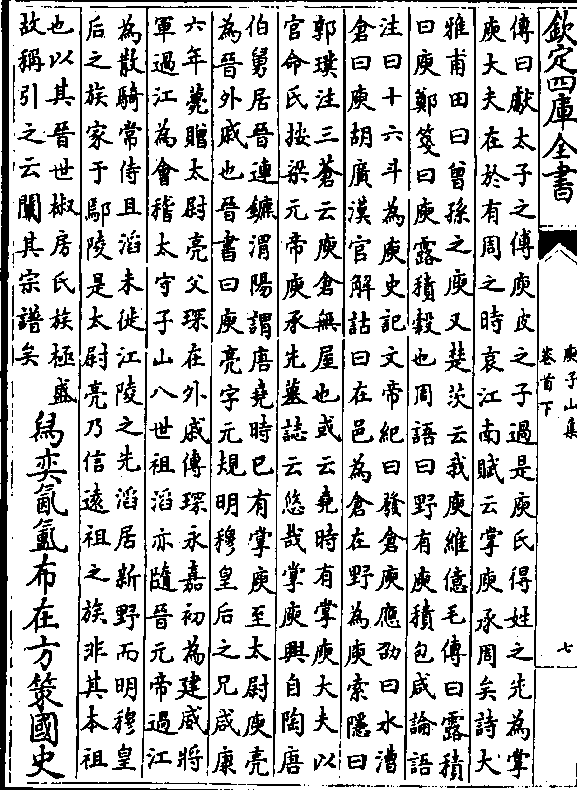 欽定四庫全書
庾子山集
卷首下
七
傳曰獻太子之傅庾皮之子過是庾氏得姓之先為掌
庾大夫在於有周之時哀江南賦云掌庾承周矣詩大
雅甫田曰曾孫之庾又楚茨云我庾維億毛傳曰露積
曰庾鄭箋曰庾露積穀也周語曰野有庾積包咸論語
注曰十六斗為庾史記文帝紀曰發倉庾應劭曰水漕
倉曰庾胡廣漢官解詁曰在邑為倉在野為庾索隱曰
郭璞注三蒼云庾倉無屋也或云堯時有掌庾大夫以
官命氏按梁元帝庾承先墓誌云悠哉掌庾興自陶唐
伯舅居晉連鑣渭陽謂唐堯時巳有掌庾至太尉庾亮
為晉外戚也晉書曰庾亮字元規明穆皇后之兄咸康
六年薨贈太尉亮父琛在外戚傳琛永嘉初為建威將
軍過江為會稽太守子山八世祖滔亦隨晉元帝過江
為散騎常侍且滔未徙江陵之先滔居新野而明穆皇
后之族家于鄢陵是太尉亮乃信遠祖之族非其本祖
也以其晉世椒房氏族極盛
故稱引之云闡其宗譜矣
舄奕氤氲布在方策國史